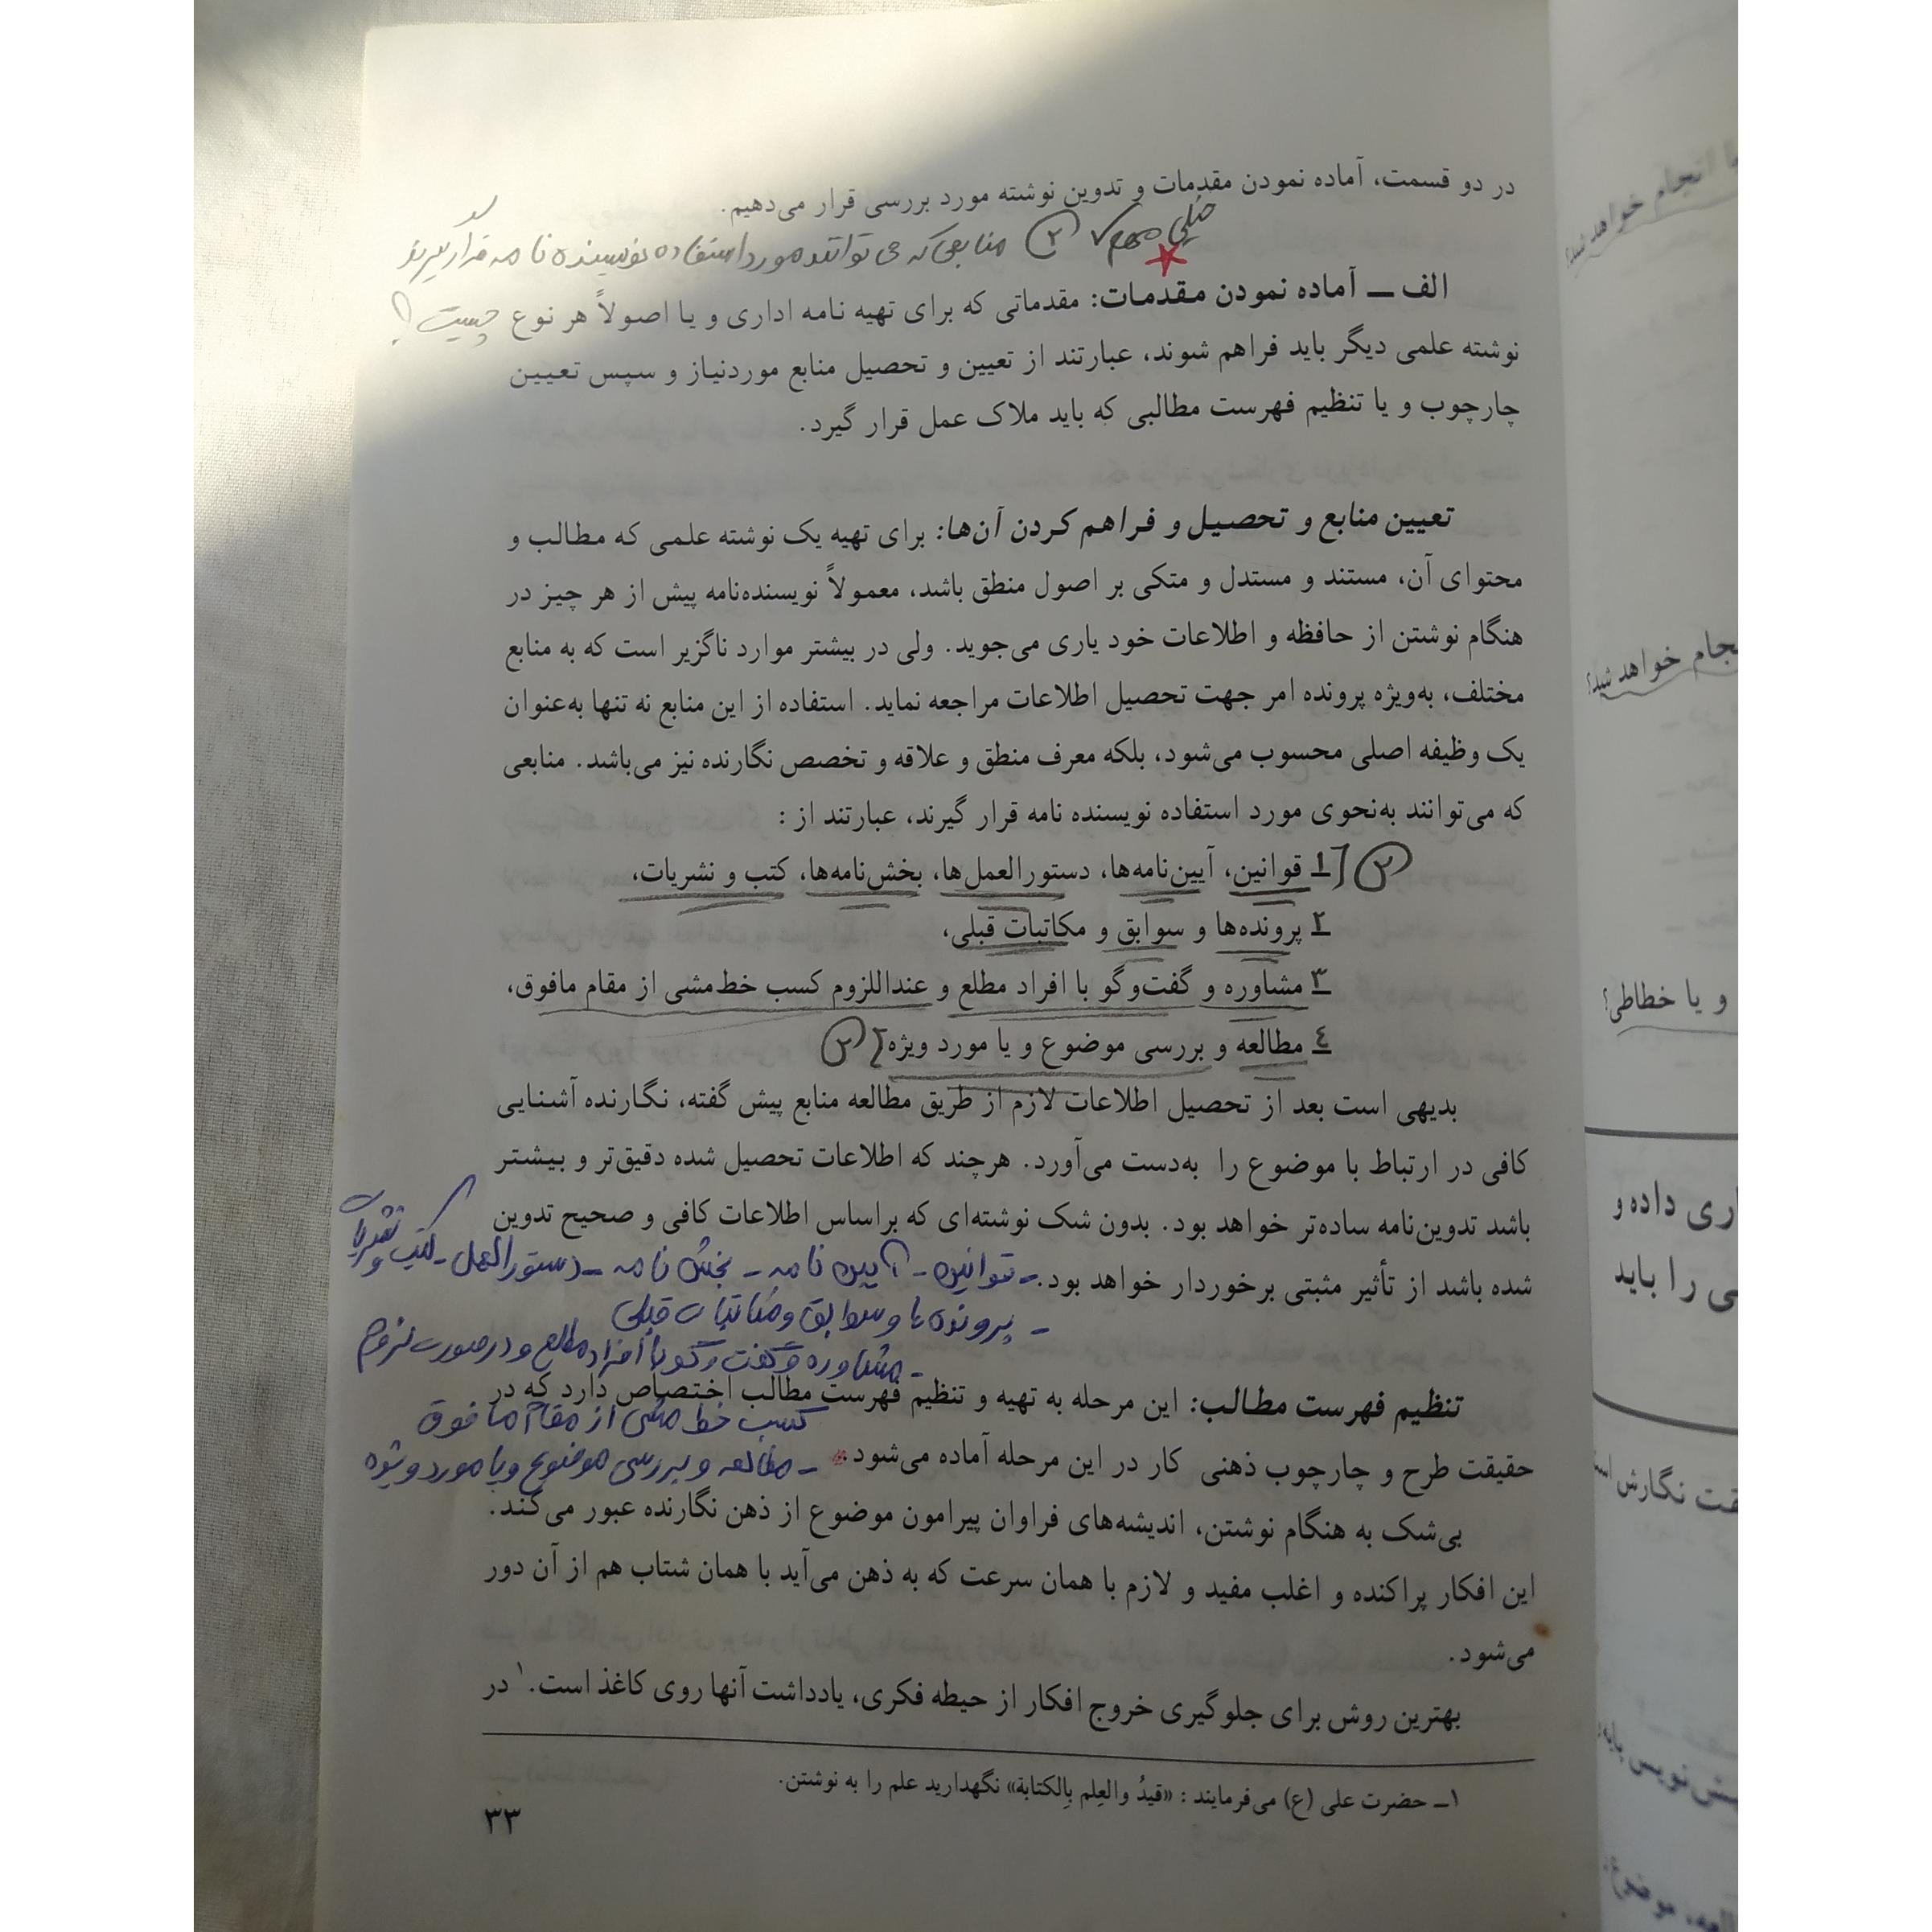 در دو قسمت، آماده نمودن مقدمات و تدوین نوشته مورد بررسی قرار می‌دهیم.
خیلی مهم ✓ ② منابعی که می توانند مورد استفاده نویسنده نامه قرار گیرند
چیست؟
الف ــ آماده نمودن مقدمات: مقدماتی که برای تهیه نامه اداری و یا اصولاً هر نوع
نوشته علمی دیگر باید فراهم شوند، عبارتند از تعیین و تحصیل منابع موردنیاز و سپس تعیین
چارچوب و یا تنظیم فهرست مطالبی که باید ملاک عمل قرار گیرد.
تعیین منابع و تحصیل و فراهم کردن آن‌ها: برای تهیه یک نوشته علمی که مطالب و
محتوای آن، مستند و مستدل و متکی بر اصول منطق باشد، معمولاً نویسنده‌نامه پیش از هر چیز در
هنگام نوشتن از حافظه و اطلاعات خود یاری می‌جوید. ولی در بیشتر موارد ناگزیر است که به منابع
مختلف، به‌ویژه پرونده امر جهت تحصیل اطلاعات مراجعه نماید. استفاده از این منابع نه تنها به‌عنوان
یک وظیفه اصلی محسوب می‌شود، بلکه معرف منطق و علاقه و تخصص نگارنده نیز می‌باشد. منابعی
که می‌توانند به‌نحوی مورد استفاده نویسنده نامه قرار گیرند، عبارتند از :
② [۱ قوانین، آیین‌نامه‌ها، دستورالعمل‌ها، بخش‌نامه‌ها، کتب و نشریات،
۲ پرونده‌ها و سوابق و مکاتبات قبلی،
۳ مشاوره و گفت‌وگو با افراد مطلع و عنداللزوم کسب خط‌مشی از مقام مافوق،
٤ مطالعه و بررسی موضوع و یا مورد ویژه] ②
بدیهی است بعد از تحصیل اطلاعات لازم از طریق مطالعه منابع پیش گفته، نگارنده آشنایی
کافی در ارتباط با موضوع را به‌دست می‌آورد. هرچند که اطلاعات تحصیل شده دقیق‌تر و بیشتر
باشد تدوین‌نامه ساده‌تر خواهد بود. بدون شک نوشته‌ای که براساس اطلاعات کافی و صحیح تدوین
شده باشد از تأثیر مثبتی برخوردار خواهد بود.
- قوانین - آیین نامه - بخش نامه - دستورالعمل - کتب و نشریات
- پرونده ها و سوابق و مکاتبات قبلی
- مشاوره و گفت و گو با افراد مطلع و در صورت لزوم
کسب خط مشی از مقام مافوق
- مطالعه و بررسی موضوع و یا مورد ویژه
تنظیم فهرست مطالب: این مرحله به تهیه و تنظیم فهرست مطالب اختصاص دارد که در
حقیقت طرح و چارچوب ذهنی کار در این مرحله آماده می‌شود.
بی‌شک به هنگام نوشتن، اندیشه‌های فراوان پیرامون موضوع از ذهن نگارنده عبور می‌کند.
این افکار پراکنده و اغلب مفید و لازم با همان سرعت که به ذهن می‌آید با همان شتاب هم از آن دور
می‌شود.
بهترین روش برای جلوگیری خروج افکار از حیطه فکری، یادداشت آنها روی کاغذ است.۱ در
۱ــ حضرت علی (ع) می‌فرمایند : «قیدُ والعِلم بِالکتابة» نگهدارید علم را به نوشتن.
۳۳
انجام خواهد شد؟
انجام خواهد شد؟
و یا خطاطی؟
داده و
را باید
نگارش